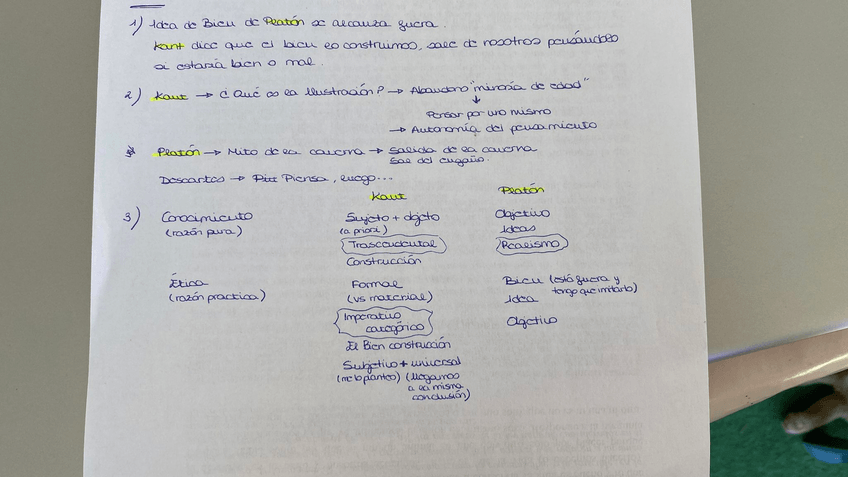 1) Idea de Bien de Platón se alcanza fuera.
Kant dice que el bien lo construimos, sale de nosotros pensándolo
si estaría bien o mal.
2) Kant → ¿Qué es la Ilustración? → Abandono "minoría de edad"
↓
Pensar por uno mismo
→ Autonomía del pensamiento
Platón → Mito de la caverna → Salida de la caverna
Sale del engaño.
Descartes → Piensa, luego...
Kant Platón
3) Conocimiento Sujeto + objeto Objetivo
(razón pura) (a priori) Ideas
Trascendental Realismo
Construcción
Ética Formal Bien (está fuera y
(razón practica) (vs material) tengo que imitarlo)
Idea
Imperativo
categórico Objetivo
El Bien construcción
Subjetivo + universal
(me lo planteo) (llegamos
a la misma
conclusión)